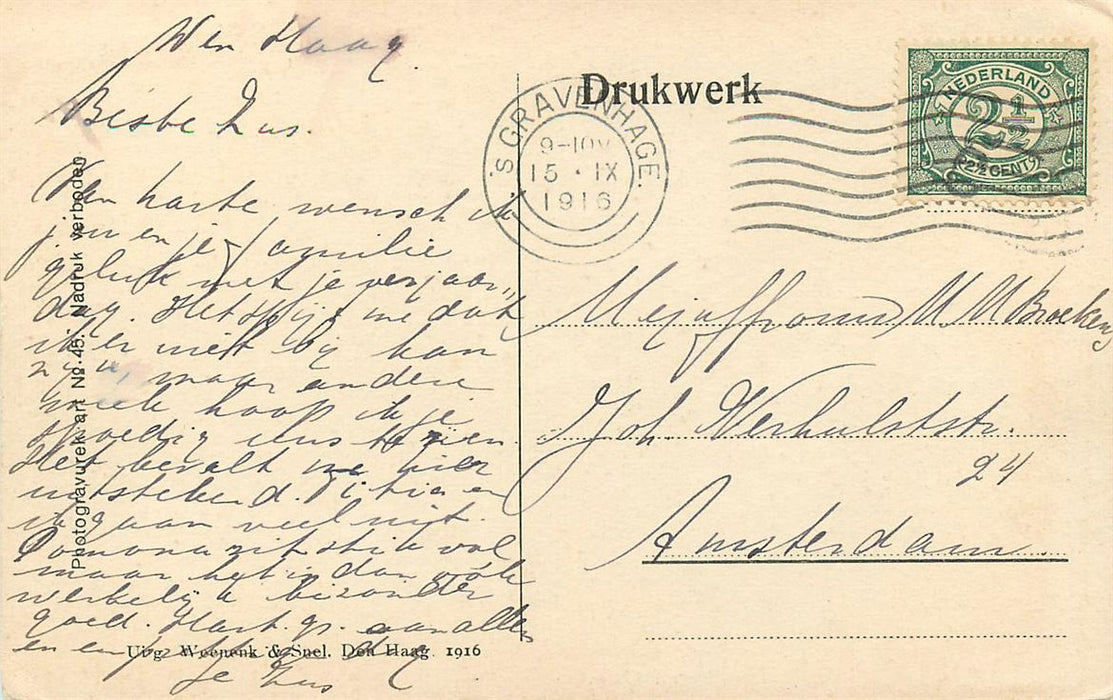 Den Haag.
Beste Zus.
Van harte wensch ik
jou en je familie
geluk met je verjaar„
dag. Het spijt me dat
ik er niet bij kan
zijn, maar
hoop ik je
spoedig eens te zien.
Het bevalt me hier
uitstekend. en
ik gaan veel uit.
Pomona zit stik vol
maar het is dan ook
werkelijk bizonder
goed. Hart. gr. aan allen
en een
je Zus
Photogravurek art No. 45. Nadruk verboden
Uitg. Weenenk & Snel. Den Haag. 1916
Drukwerk
'S GRAVENHAGE.
9-10V
15 · IX
1916
NEDERLAND
2½
2½ CENT
Mejuffrouw M. M. Broekens
Joh. Verhulststr.
24
Amsterdam.